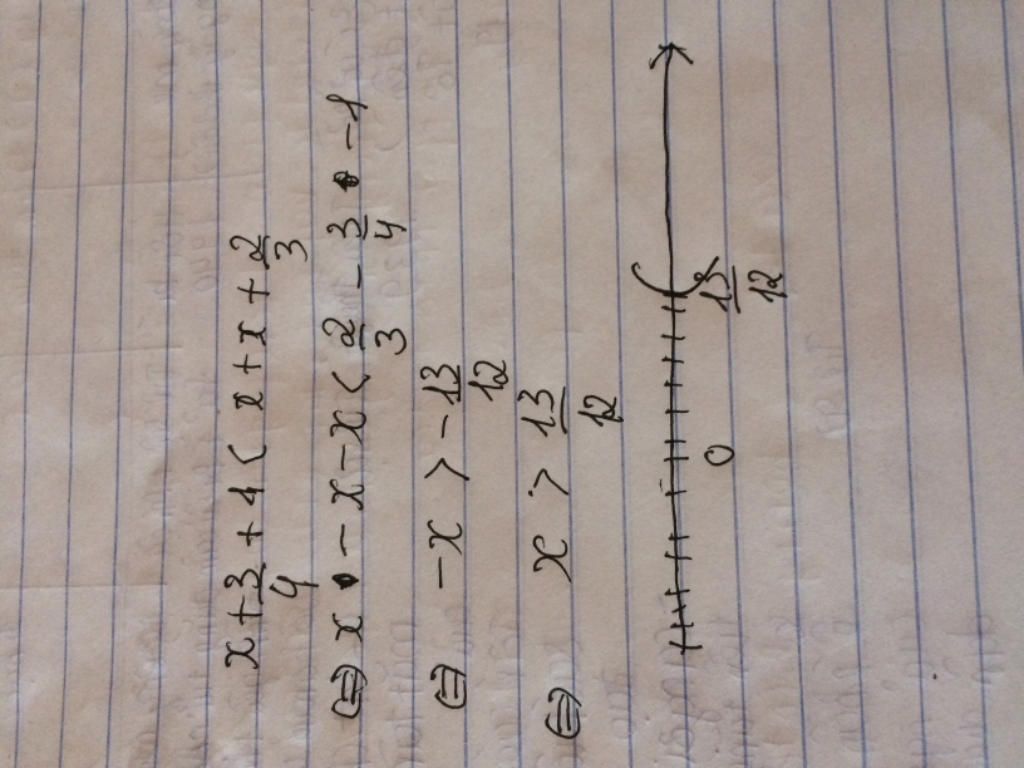 x + 3/4 + 1 < x + x + 2/3
⇔ x - x - x < 2/3 - 3/4 - 1
⇔ -x > -13/12
⇔ x > 13/12
0 13/12